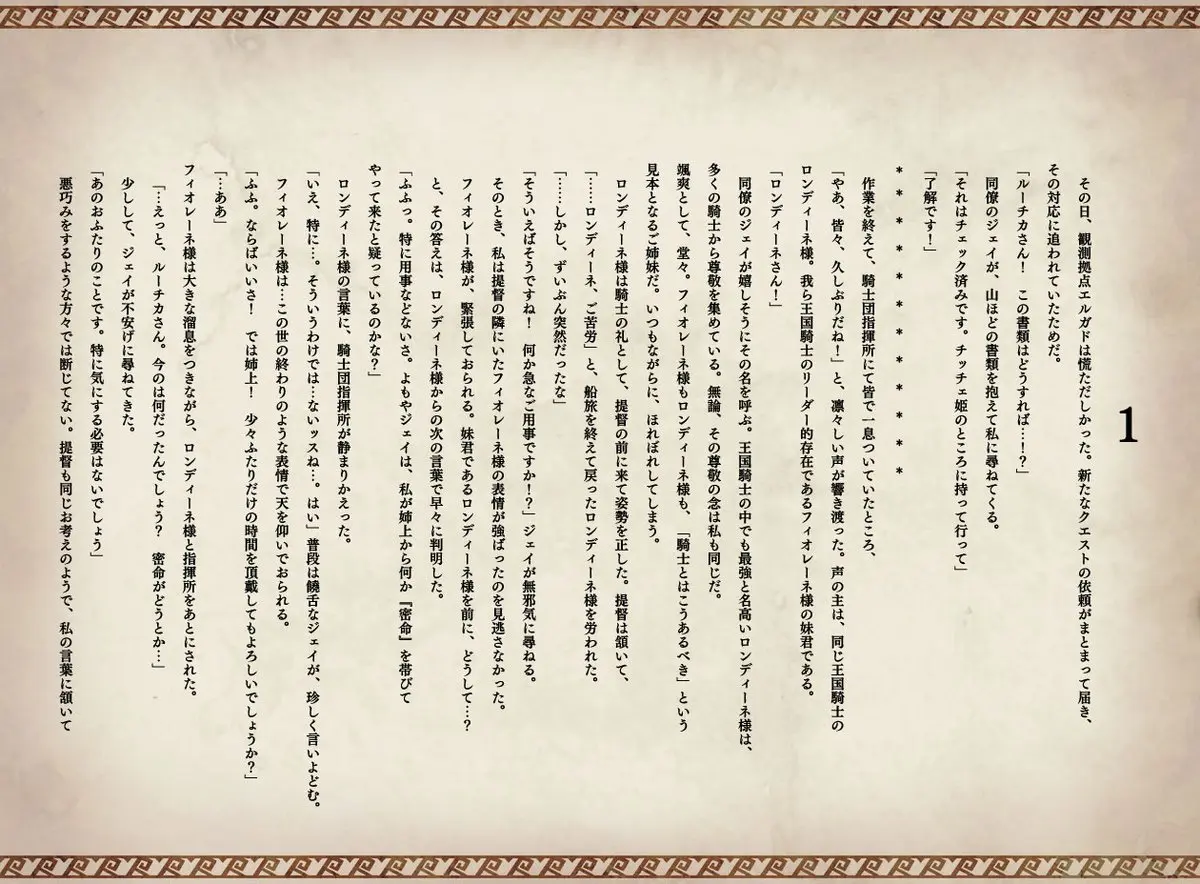 1
その日、観測拠点エルガドは慌ただしかった。新たなクエストの依頼がまとまって届き、
その対応に追われていたためだ。
「ルーチカさん!　この書類はどうすれば…!?」
同僚のジェイが、山ほどの書類を抱えて私に尋ねてくる。
「それはチェック済みです。チッチェ姫のところに持って行って」
「了解です!」
* * * * * * * * * * * *
作業を終えて、騎士団指揮所にて皆で一息ついていたところ、
「やあ、皆々、久しぶりだね!」と、凛々しい声が響き渡った。声の主は、同じ王国騎士の
ロンディーネ様。我ら王国騎士のリーダー的存在であるフィオレーネ様の妹君である。
「ロンディーネさん!」
同僚のジェイが嬉しそうにその名を呼ぶ。王国騎士の中でも最強と名高いロンディーネ様は、
多くの騎士から尊敬を集めている。無論、その尊敬の念は私も同じだ。
颯爽として、堂々。フィオレーネ様もロンディーネ様も、「騎士とはこうあるべき」という
見本となるご姉妹だ。いつもながらに、ほれぼれしてしまう。
ロンディーネ様は騎士の礼として、提督の前に来て姿勢を正した。提督は頷いて、
「……ロンディーネ、ご苦労」と、船旅を終えて戻ったロンディーネ様を労われた。
「……しかし、ずいぶん突然だったな」
「そういえばそうですね!　何か急なご用事ですか!?」ジェイが無邪気に尋ねる。
そのとき、私は提督の隣にいたフィオレーネ様の表情が強ばったのを見逃さなかった。
フィオレーネ様が、緊張しておられる。妹君であるロンディーネ様を前に、どうして…?
と、その答えは、ロンディーネ様からの次の言葉で早々に判明した。
「ふふっ。特に用事などないさ。よもやジェイは、私が姉上から何か『密命』を帯びて
やって来たと疑っているのかな?」
ロンディーネ様の言葉に、騎士団指揮所が静まりかえった。
「いえ、特に…。そういうわけでは…ないッスね…。はい」普段は饒舌なジェイが、珍しく言いよどむ。
フィオレーネ様は…この世の終わりのような表情で天を仰いでおられる。
「ふふ。ならばいいさ!　では姉上!　少々ふたりだけの時間を頂戴してもよろしいでしょうか?」
「…ああ」
フィオレーネ様は大きな溜息をつきながら、ロンディーネ様と指揮所をあとにされた。
「…えっと、ルーチカさん。今のは何だったんでしょう?　密命がどうとか…」
少しして、ジェイが不安げに尋ねてきた。
「あのおふたりのことです。特に気にする必要はないでしょう」
悪巧みをするような方々では断じてない。提督も同じお考えのようで、私の言葉に頷いて